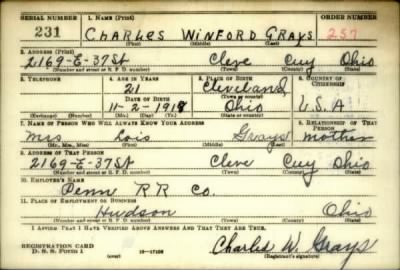 SERIAL NUMBER 1. NAME (Print) ORDER NUMBER
231 CHARLES WINFORD GRAYS 257
(First) (Middle) (Last)
2. ADDRESS (Print)
2169-E-37St Cleve Cuy Ohio
(Number and street or R. F. D. number) (Town) (County) (State)
3. TELEPHONE 4. AGE IN YEARS 5. PLACE OF BIRTH 6. COUNTRY OF CITIZENSHIP
21 Cleveland
DATE OF BIRTH (Town or county)
11-2-1918 Ohio U.S.A
(Exchange) (Number) (Mo.) (Day) (Yr.) (State or country)
7. NAME OF PERSON WHO WILL ALWAYS KNOW YOUR ADDRESS 8. RELATIONSHIP OF THAT PERSON
Mrs Lois Grays mother
(Mr., Mrs., Miss) (First) (Middle) (Last)
9. ADDRESS OF THAT PERSON
2169-E-37St Cleve Cuy Ohio
(Number and street or R. F. D. number) (Town) (County) (State)
10. EMPLOYER'S NAME
Penn RR Co.
11. PLACE OF EMPLOYMENT OR BUSINESS
Hudson Ohio
(Number and street or R. F. D. number) (Town) (County) (State)
I AFFIRM THAT I HAVE VERIFIED ABOVE ANSWERS AND THAT THEY ARE TRUE.
REGISTRATION CARD
D. S. S. FORM 1 (over) Charles W. Grays
(Registrant's signature)